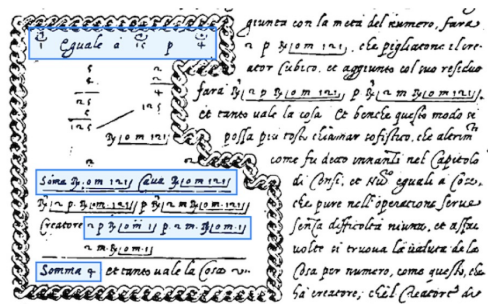 Eguale à 15 p 4
5 2
5 2
25 4
5
125 125
R⌊0 m 121⌋
2 2
Soma R⌊0 m 121⌋ Caua R⌊0 m 121⌋
R⌊2 p R⌊0 m 121⌋⌋ p R⌊2 m R⌊0 m 121⌋⌋
Creatore 2 p R⌊0 m 1⌋ p. 2 m. R⌊0 m. 1⌋
2 m. R⌊0 m. 1⌋
Somma 4 et tanto uale la Cosa
giunta con la metà del numero, farà
2 p R⌊0 m 121⌋, che pigliatone il cre-
ator Cubico, et aggiunto col suo residuo
farà R⌊2 p R⌊0 m 121⌋⌋ p R⌊2 m R⌊0 m 121⌋⌋,
et tanto uale la cosa Et benche questo modo si
possa piu tosto chiamar sofistico, che
come fu detto innanti nel Capitolo
di Censi, et Nuᵒ eguali a Cose,
che pure nell'operatione serue
senza difficoltà niuna, et assai
uolte si truoua la ualuta de la
Cosa per numero, como questo, che
ha creatore, ch'el Creatore di